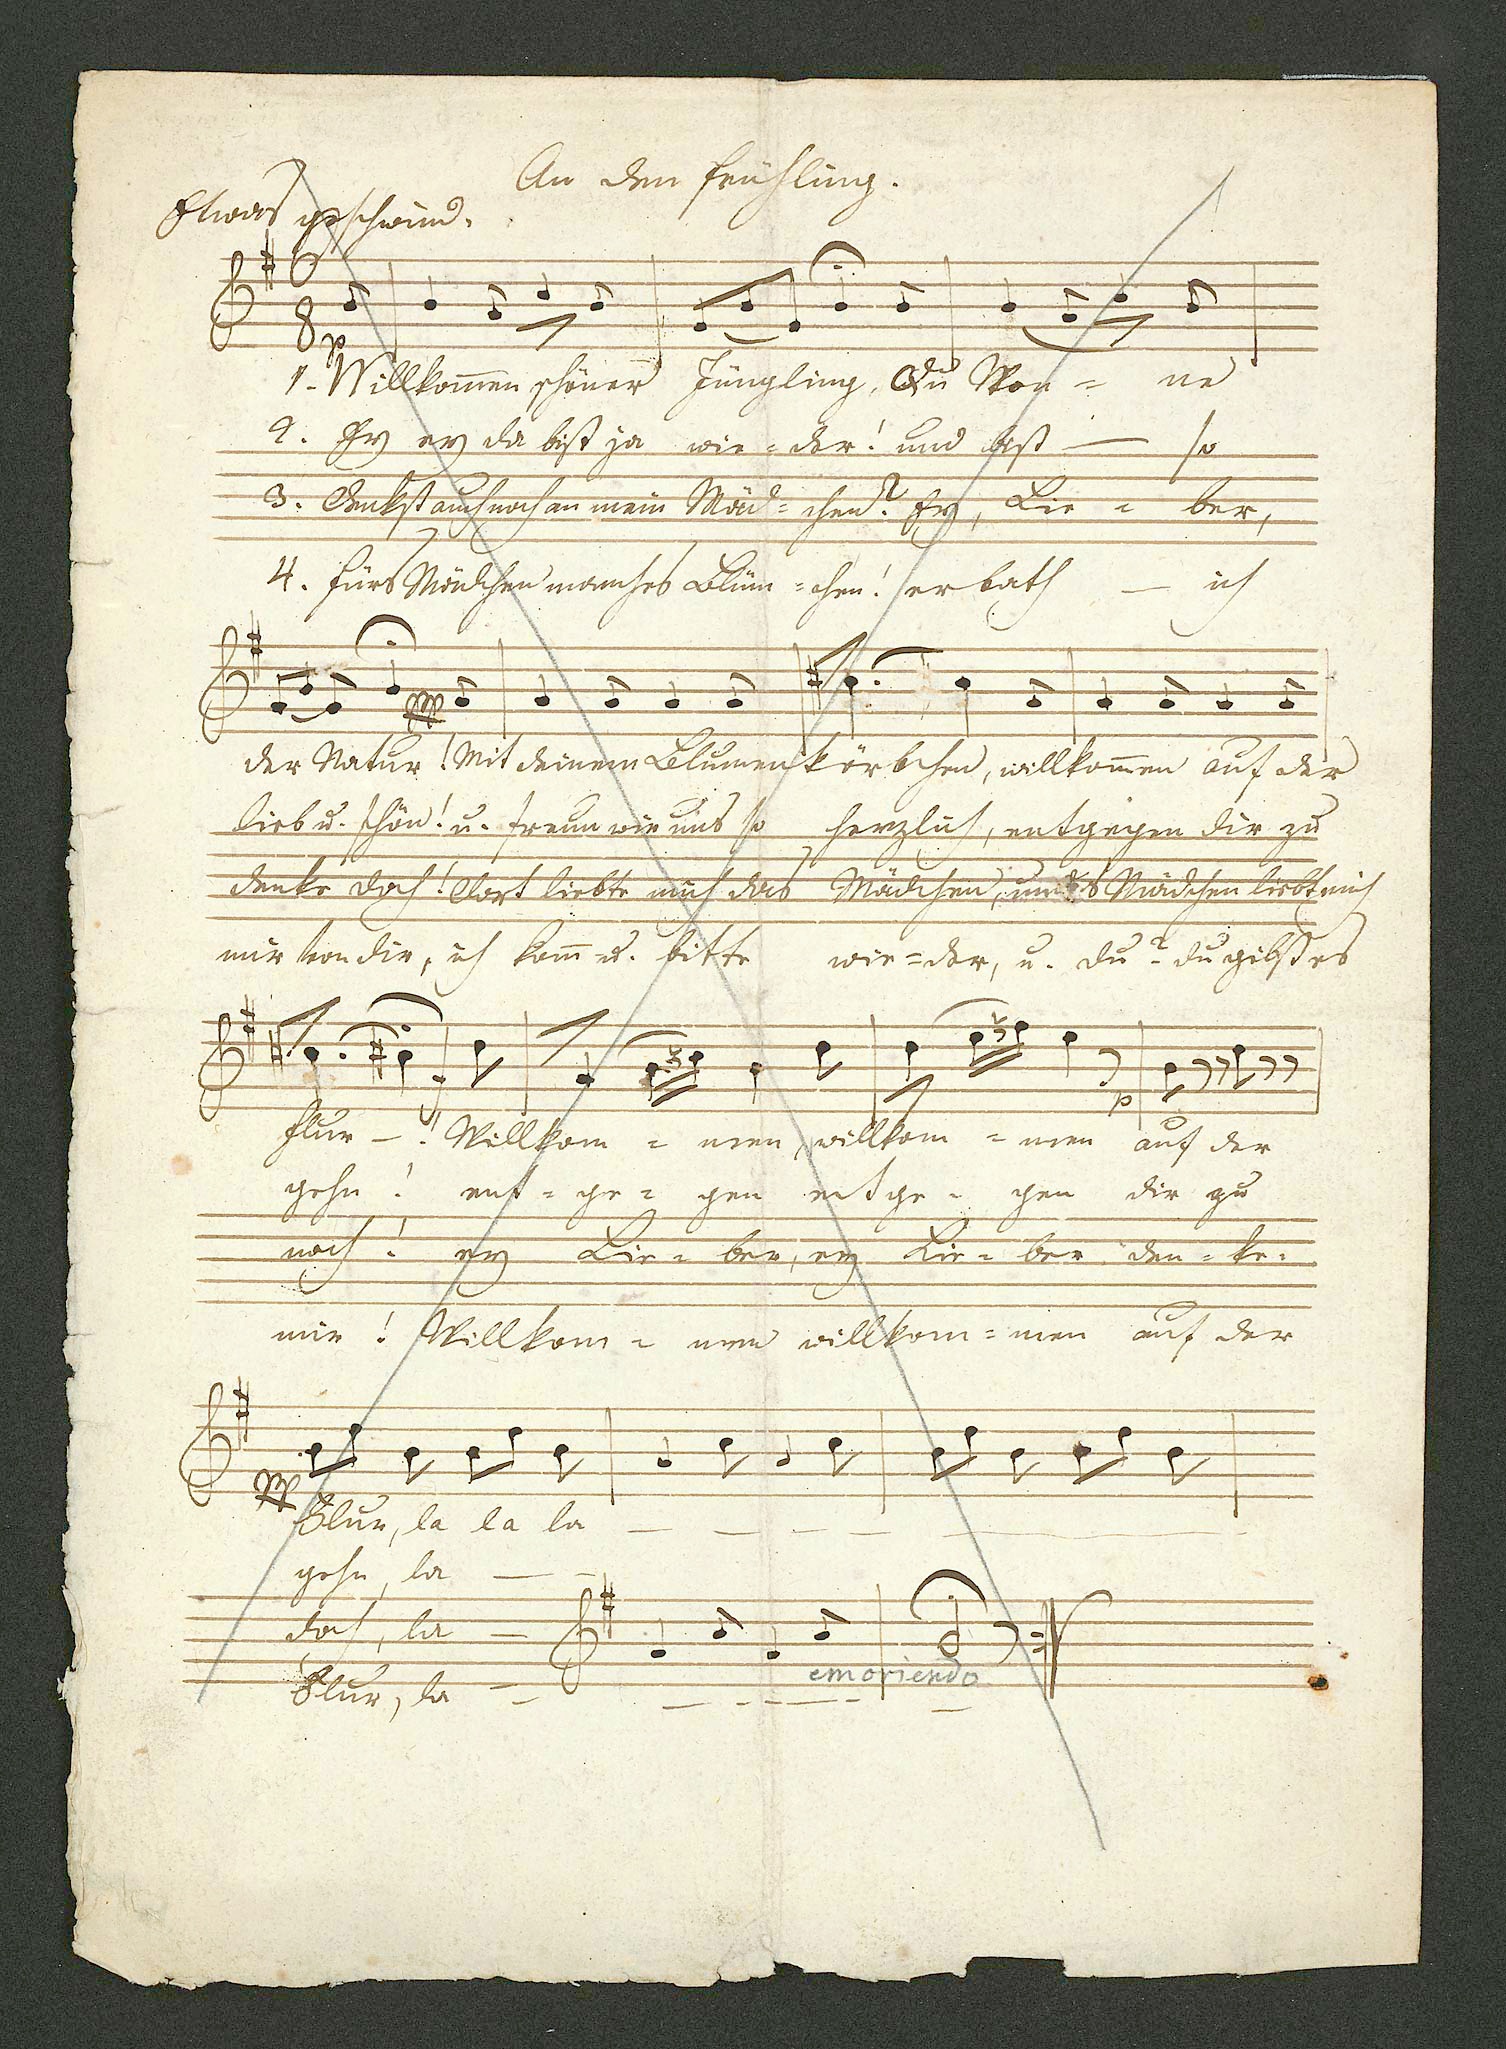 An den Frühling.
Etwas geschwind.
6
8
p
1. Willkom̄en schöner Jüngling, Du Won = ne
2. Ey ey da bist ja wie = der! und bist — so
3. Denkst auch noch an mein Mäd = chen? Ey, Lie = ber,
4. Fürs Mädchen manches Blüm = chen! erbath — ich
ppp
der Natur! Mit deinem Blumenkörbchen, willkom̄en auf der
lieb u. schön! u. freun wir uns so herzlich, entgegen dir zu
denke doch! Dort liebte mich das Mädchen, und 's Mädchen liebt mich
mir von dir, ich kom̄ u. bitte wie = der, u. du? du gibst es
3 3
p
Flur —! Willkom = men, willkom = men auf der
gehn! ent = ge = gen entge = gen dir zu
noch! ey Lie = ber, ey Lie = ber den = ke =
mir! Willkom = men willkom = men auf der
pp
Flur, la la la — — — — —
gehn, la — —
doch, la —
emoriendo
Flur, la — — — — — — —